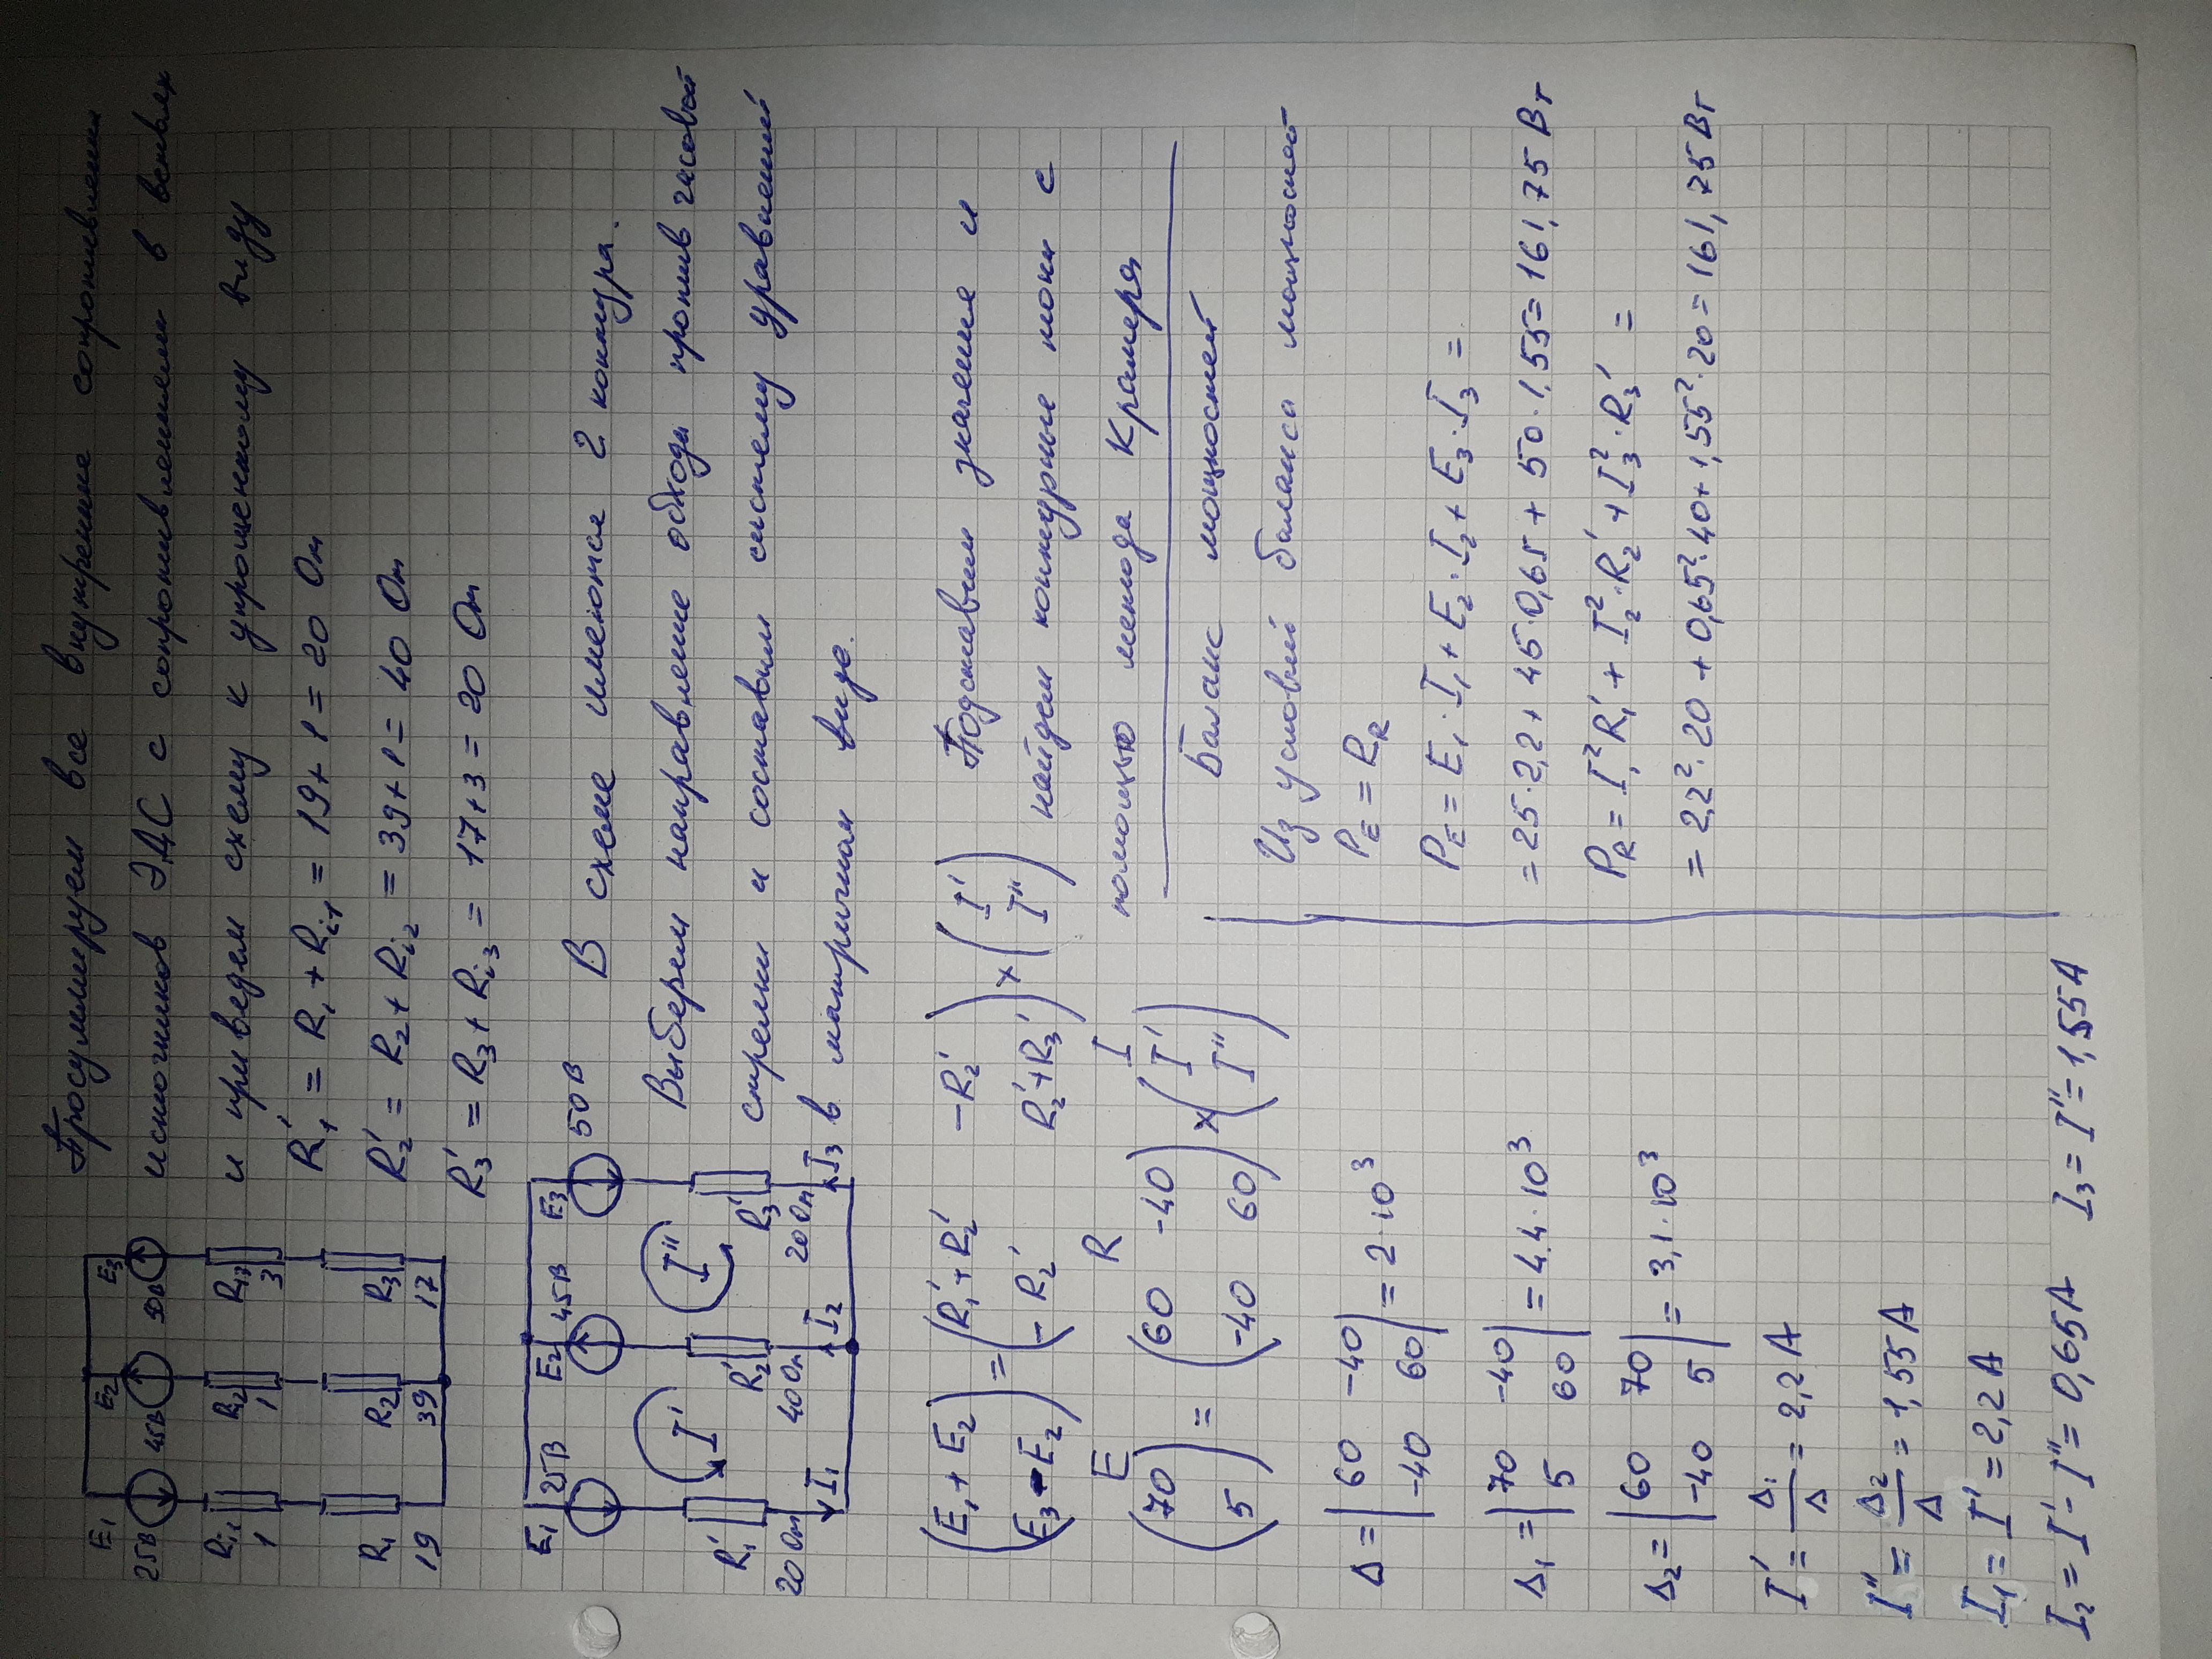 Просуммируем все внутренние сопротивления
источников ЭДС с сопротивлениями в ветвях
и приведем схему к упрощенному виду
E₁ E₂ E₃
25В 45В 50В
Ri1 Ri2 Ri3
1 1 3
R₁ R₂ R₃
19 39 17
R₁' = R₁ + Ri1 = 19 + 1 = 20 Ом
R₂' = R₂ + Ri2 = 39 + 1 = 40 Ом
R₃' = R₃ + Ri3 = 17 + 3 = 20 Ом
E₁ 25В E₂ 45В E₃ 50В
I' I''
R₁' R₂' R₃'
20 Ом 40 Ом 20 Ом
I₁ I₂ I₃
В схеме имеются 2 контура.
Выберем направление обхода против часовой
стрелки и составим систему уравнений
в матричном виде.
(E₁ + E₂) = (R₁' + R₂' -R₂') × (I')
(E₃ - E₂) (-R₂' R₂' + R₃') (I'')
E R I
(70) = (60 -40) × (I')
(5) (-40 60) (I'')
Подставим значение и
найдем контурные токи с
помощью метода Крамера
Δ = |60 -40| = 2·10³
|-40 60|
Δ₁ = |70 -40| = 4.4·10³
|5 60|
Δ₂ = |60 70| = 3,1·10³
|-40 5|
I' = Δ₁/Δ = 2,2 А
I'' = Δ₂/Δ = 1,55 А
I₁ = I' = 2,2 А
I₂ = I' - I'' = 0,65А I₃ = I'' = 1,55А
Баланс мощностей
Из условий баланса мощностей
P_E = P_R
P_E = E₁·I₁ + E₂·I₂ + E₃·I₃ =
= 25·2,2 + 45·0,65 + 50·1,55 = 161,75 Вт
P_R = I₁²R₁' + I₂²·R₂' + I₃²·R₃' =
= 2,2²·20 + 0,65²·40 + 1,55²·20 = 161,75 Вт